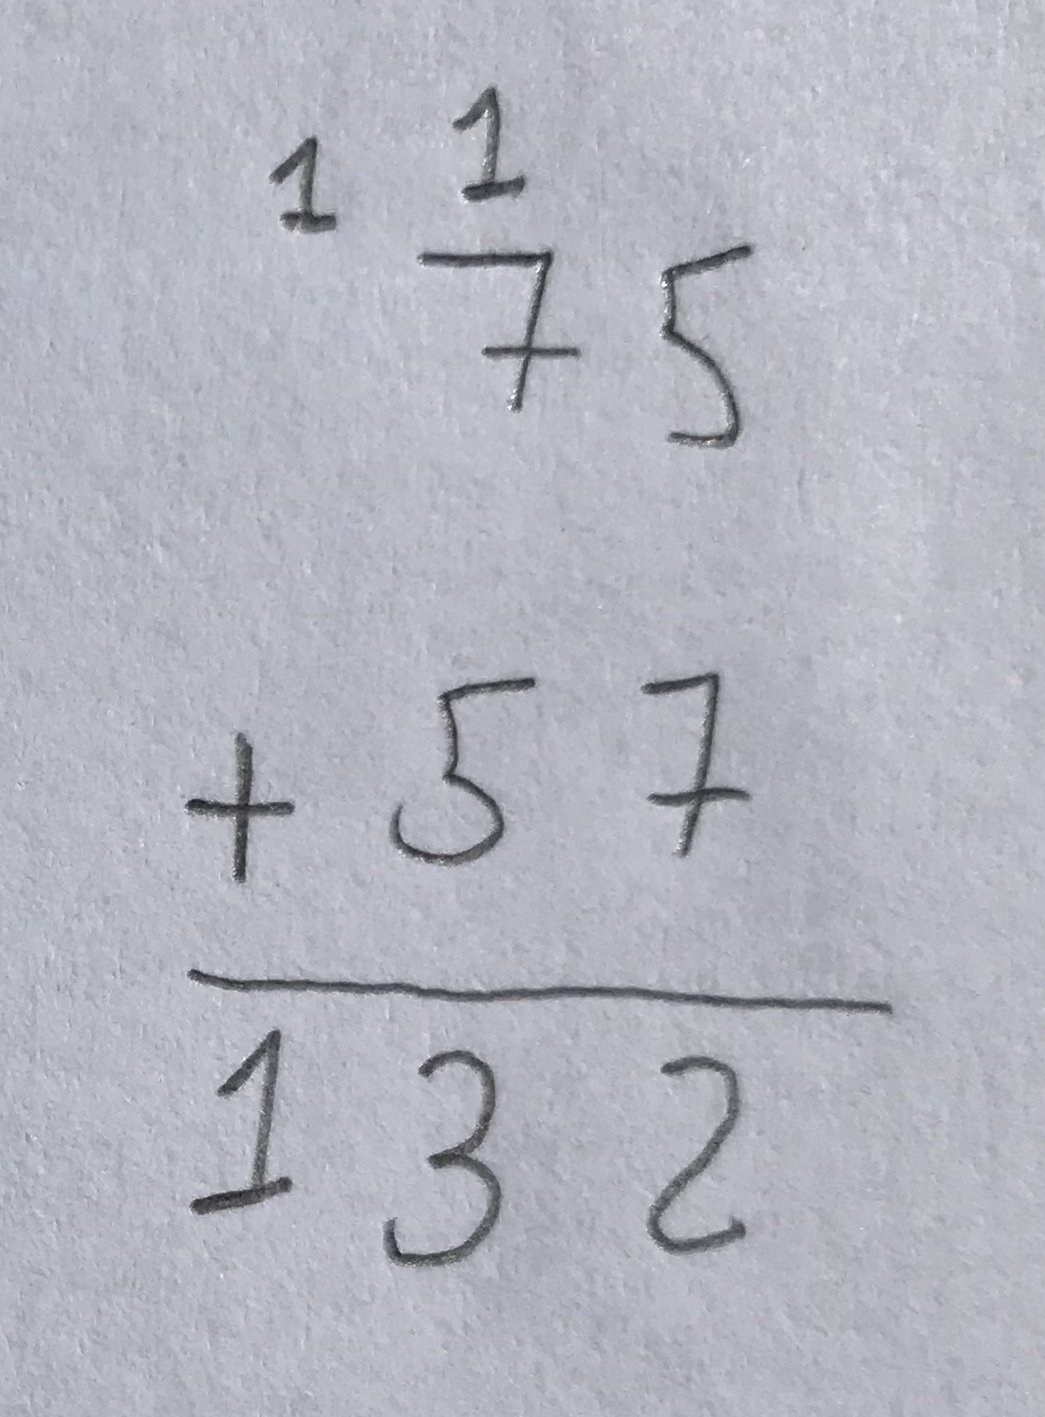 1 1
7 5
+ 5 7
1 3 2